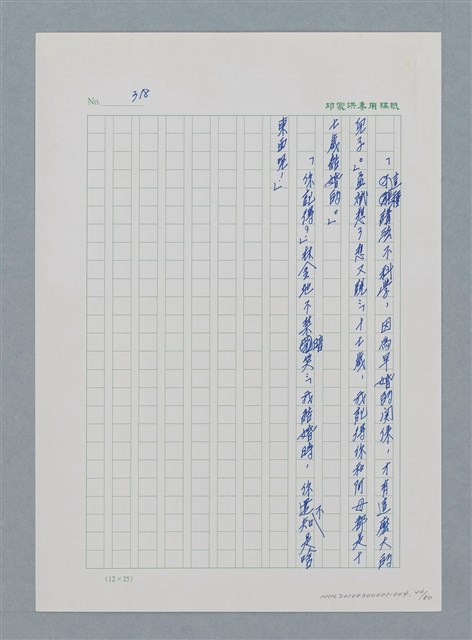 No. 318
邱家洪專用稿紙
「這種講法不科學，因為早婚的関係，才有這麼大的
兒子。」孟斌想了想又說：「十七歲，我記得你和阿母都是十
七歲結婚的。」
「你記得？」林金池不禁暗笑：「我結婚時，你還不知是啥
東西呢！」
(12×25)